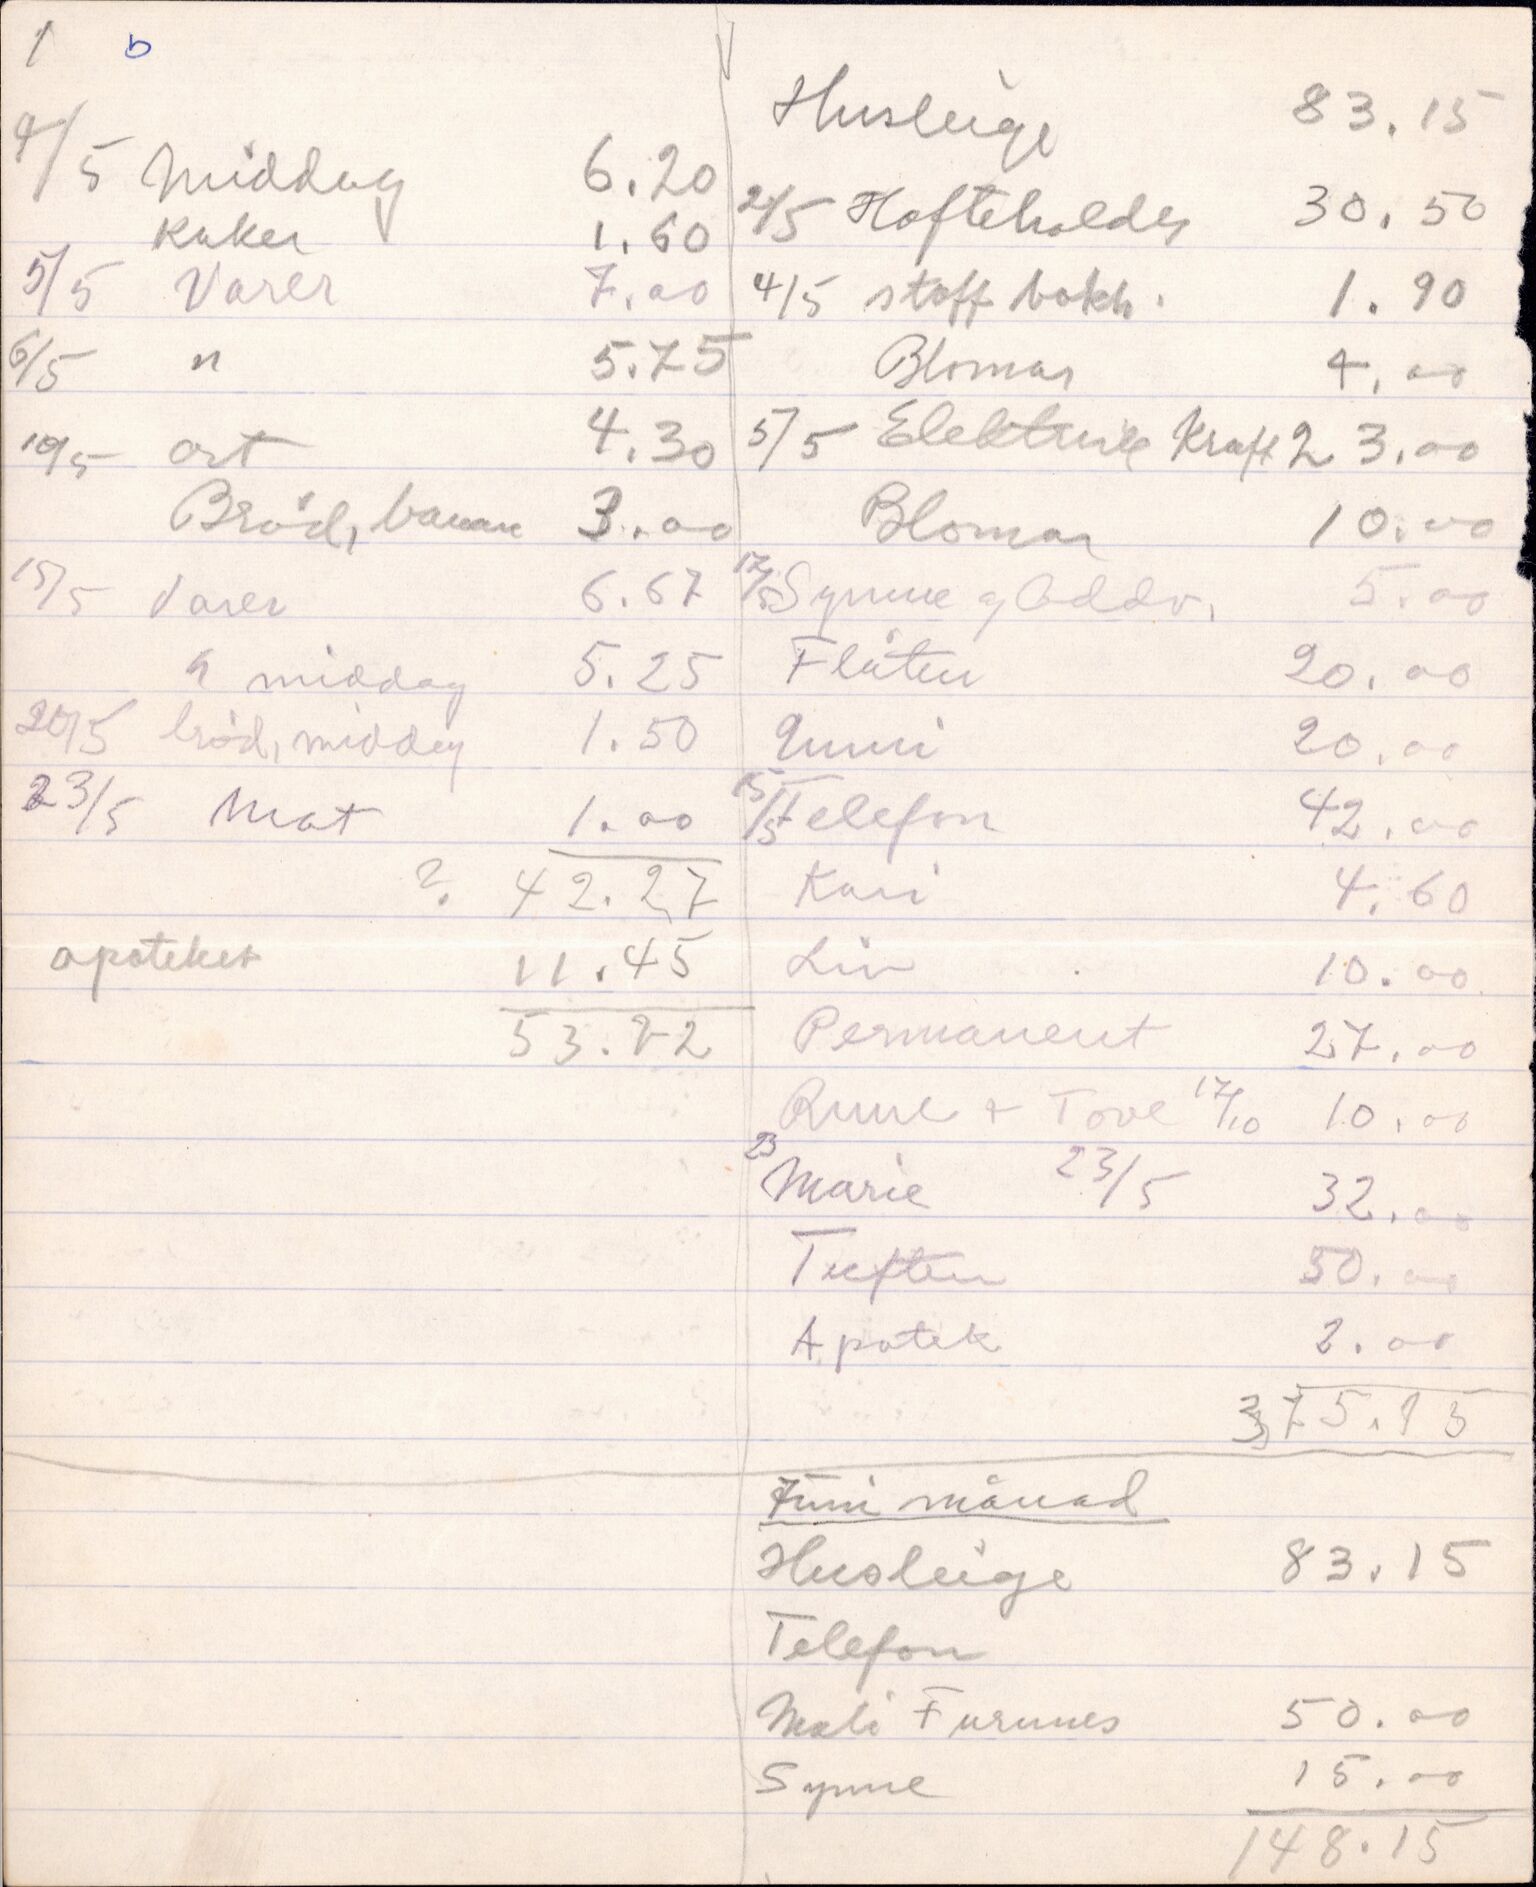 1 b
4/5 Middag 6.20
Kaker 1.60
5/5 Varer 7.00
6/5 " 5.75
10/5 ost 4.30
Brød, banan 3.00
15/5 Varer 6.67
" middag 5.25
20/5 brød, middag 1.50
23/5 Mat 1.00
2. 42.27
apoteket 11.45
53.72
Husleige 83.15
2/5 Hofteholder 30.50
4/5 stoff bokh. 1.90
Blomar 4.00
5/5 Elektrisk Kraft 23.00
Blomar 10.00
17/5 Synne og Oddv. 5.00
Flåten 20.00
Gunni 20.00
15/5 Telefon 42.00
Kari 4.60
Liv 10.00
Permanent 27.00
Rune + Tove 17/10 10.00
23 Marie 23/5 32.00
Tuften 50.00
Apotek 2.00
375.15
Juni månad
Husleige 83.15
Telefon
Mali Furunes 50.00
Synne 15.00
148.15